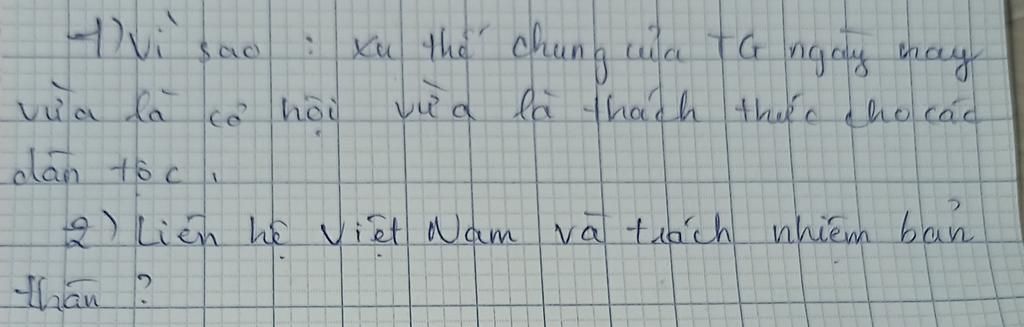 1) Vì sao : xu thế chung của TG ngày nay
vừa là cơ hội vừa là thách thức cho các
dân tộc.
2) Liên hệ Việt Nam và trách nhiệm bản
thân ?